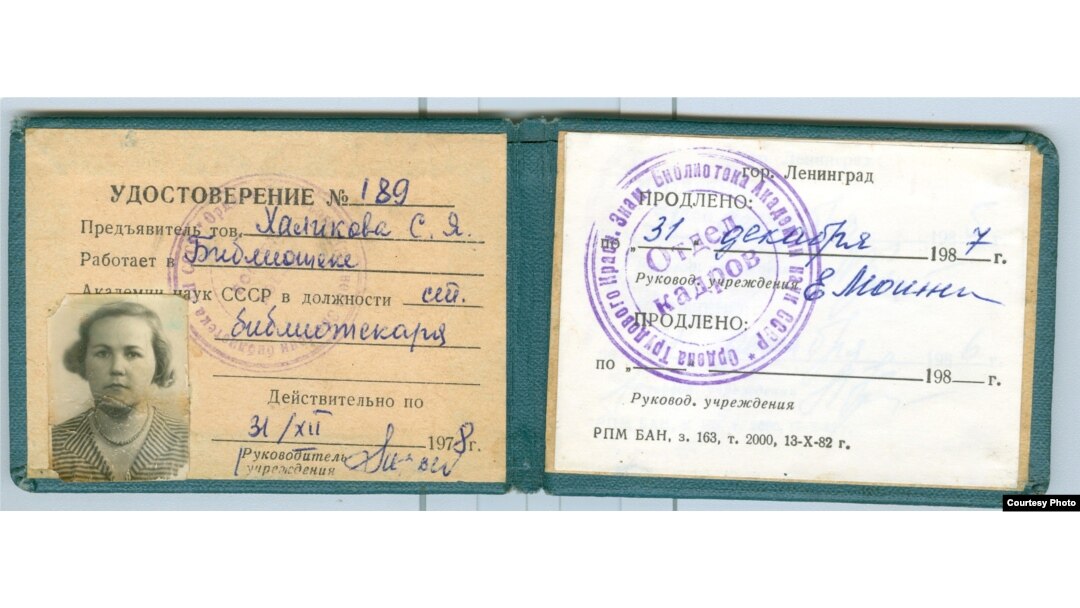 УДОСТОВЕРЕНИЕ № 189
Предъявитель тов. Халикова С. Я.
Работает в Библиотеке
Академии наук СССР в должности
библиотекаря
Действительно по
31/XII 1978г.
Руководитель
учреждения
гор. Ленинград
ПРОДЛЕНО:
по „ 31 " декабря 1987 г.
Руковод. учреждения
ПРОДЛЕНО:
по „ 198 г.
Руковод. учреждения
РПМ БАН, з. 163, т. 2000, 13-X-82 г.
Ордена Трудового Красн. Знам. Библиотека Академии наук СССР *
Отдел
кадров
Courtesy Photo